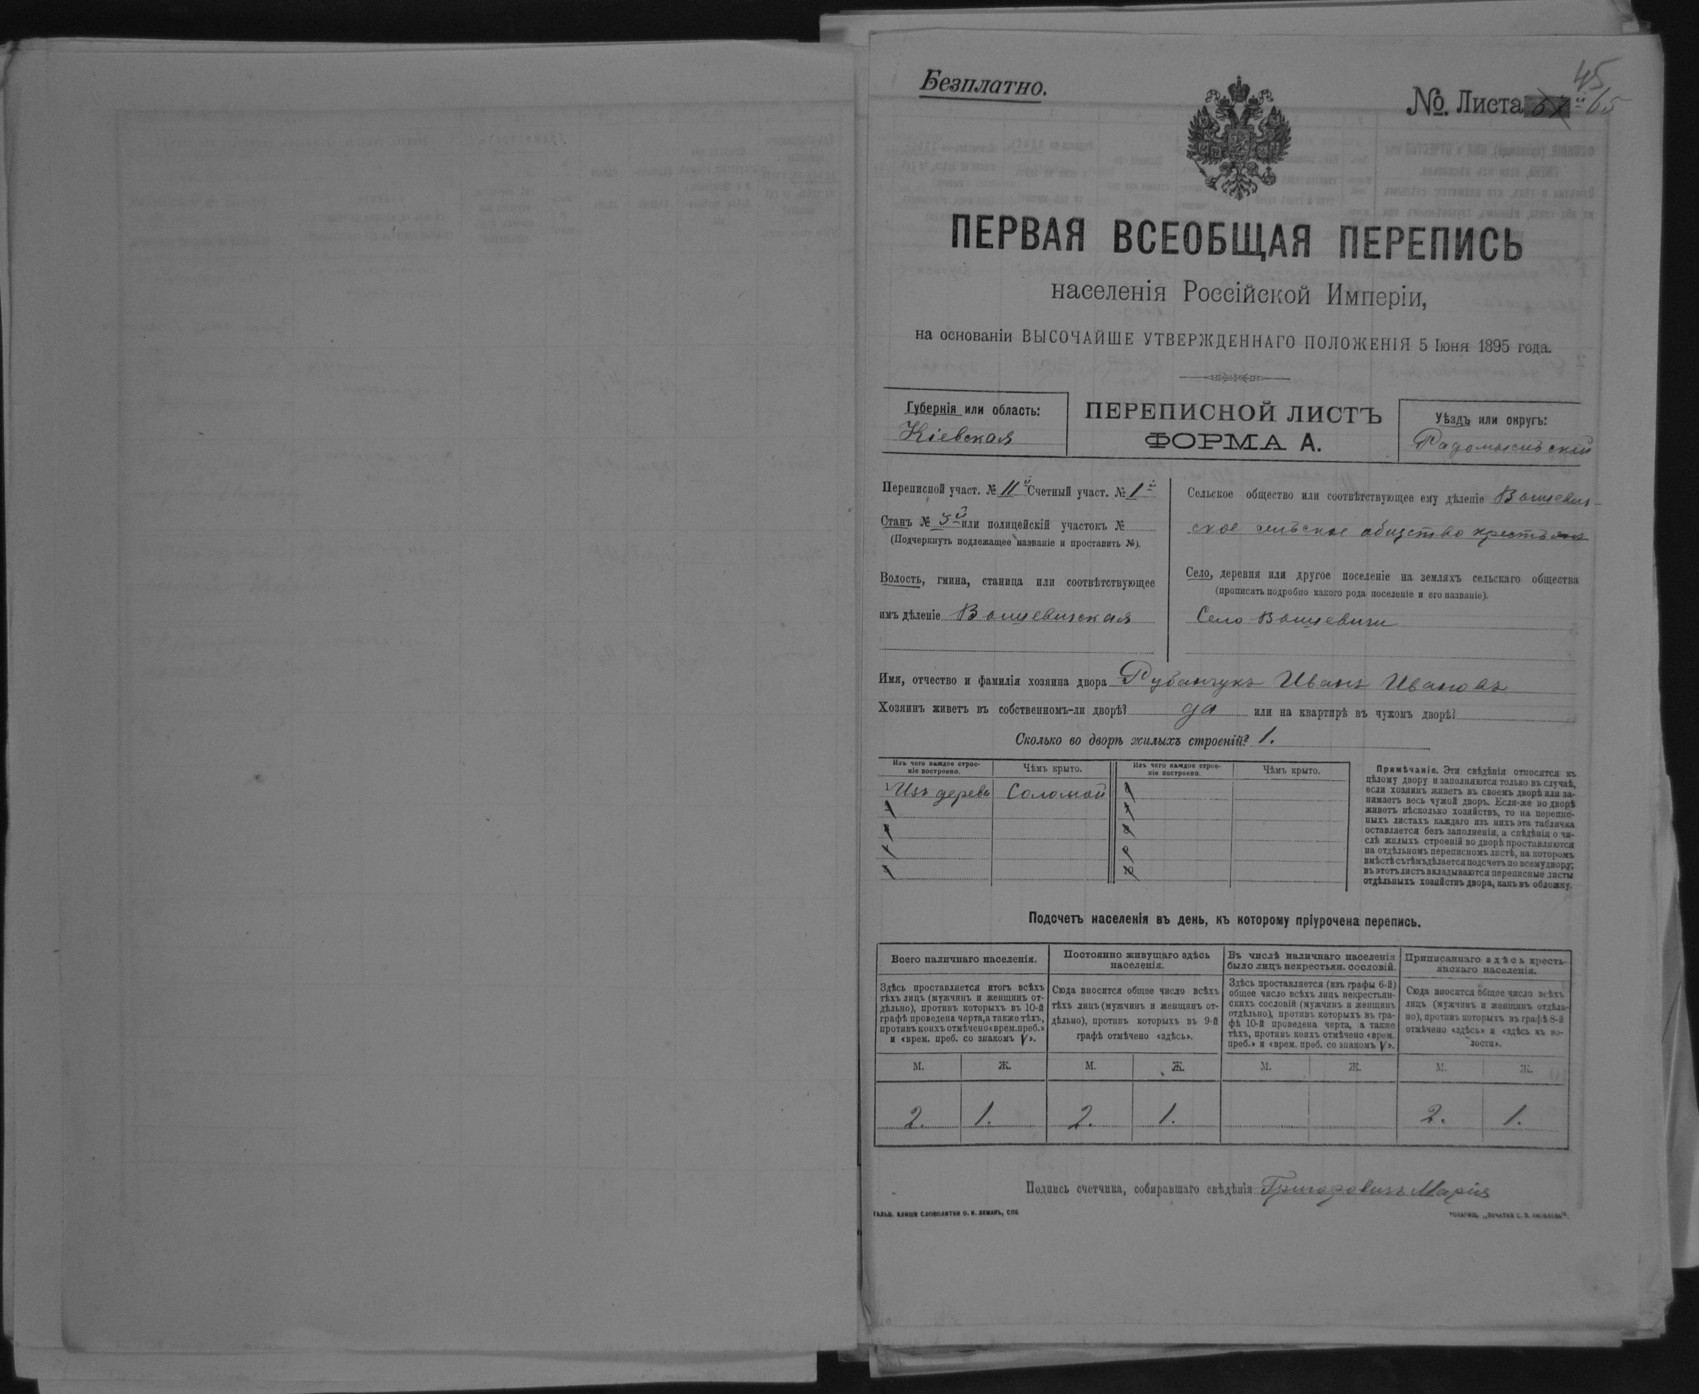 45
Безплатно.
№. Листа 65
ПЕРВАЯ ВСЕОБЩАЯ ПЕРЕПИСЬ
населенія Россійской Имперіи,
на основаніи ВЫСОЧАЙШЕ УТВЕРЖДЕННАГО ПОЛОЖЕНІЯ 5 Іюня 1895 года.
Губернія или область:
Кіевская
ПЕРЕПИСНОЙ ЛИСТЪ
ФОРМА А.
Уѣздъ или округъ:
Радомысльскій
Переписной участ. № 11й Счетный участ. № 1й
Станъ № 3й или полицейскій участокъ №
(Подчеркнуть подлежащее названіе и проставить №).
Волость, гмина, станица или соотвѣтствующее
имъ дѣленіе Вышевичская
Сельское общество или соотвѣтствующее ему дѣленіе Вышевич-
ское сельское общество крестьянъ
Село, деревня или другое поселеніе на земляхъ сельскаго общества
(прописать подробно какого рода поселеніе и его названіе).
Село Вышевичи
Имя, отчество и фамилія хозяина двора Рубанчукъ Иванъ Ивановъ
Хозяинъ живетъ въ собственномъ-ли дворѣ? да или на квартирѣ въ чужомъ дворѣ?
Сколько во дворѣ жилыхъ строеній? 1.
Изъ чего каждое строе-
ніе построено.
Чѣмъ крыто.
Изъ чего каждое строе-
ніе построено.
Чѣмъ крыто.
Изъ дерева Соломой
Примѣчаніе. Эти свѣдѣнія относятся къ
цѣлому двору и заполняются только въ случаѣ,
если хозяинъ живетъ въ своемъ дворѣ или за-
нимаетъ весь чужой дворъ. Если-же во дворѣ
живетъ нѣсколько хозяйствъ, то на перепис-
ныхъ листахъ каждаго изъ нихъ эта табличка
оставляется безъ заполненія, а свѣдѣнія о чи-
слѣ жилыхъ строеній во дворѣ проставляются
на отдѣльномъ переписномъ листѣ, на которомъ
вмѣстѣ съ тѣмъ дѣлается подсчетъ по всему двору;
въ этотъ листъ вкладываются переписные листы
отдѣльныхъ хозяйствъ двора, какъ въ обложку.
Подсчетъ населенія въ день, къ которому пріурочена перепись.
Всего наличнаго населенія.
Здѣсь проставляется итогъ всѣхъ
тѣхъ лицъ (мужчинъ и женщинъ от-
дѣльно), противъ которыхъ въ 10-й
графѣ проведена черта, а также тѣхъ,
противъ коихъ отмѣчено «врем. преб.»
и «врем. преб. со знакомъ V».
Постоянно живущаго здѣсь
населенія.
Сюда вносится общее число всѣхъ
тѣхъ лицъ (мужчинъ и женщинъ от-
дѣльно), противъ которыхъ въ 9-й
графѣ отмѣчено «здѣсь».
Въ числѣ наличнаго населенія
было лицъ некрестьян. сословій.
Здѣсь проставляется (изъ графы 6-й)
общее число всѣхъ лицъ некрестьян-
скихъ сословій (мужчинъ и женщинъ
отдѣльно), противъ которыхъ въ гра-
фѣ 10-й проведена черта, а также
тѣхъ, противъ коихъ отмѣчено «врем.
преб.» и «врем. преб. со знакомъ V».
Приписаннаго здѣсь кресть-
янскаго населенія.
Сюда вносится общее число всѣхъ
лицъ (мужчинъ и женщинъ отдѣль-
но), противъ которыхъ въ графѣ 8-й
отмѣчено «здѣсь» и «здѣсь къ во-
лости».
М. Ж. М. Ж. М. Ж. М. Ж.
2. 1. 2. 1. 2. 1.
Подпись счетчика, собиравшаго свѣдѣнія Григоровичъ Марія
ГАЛЬВ. КЛИШЕ СЛОВОЛИТНИ О. И. ЛЕМАНЪ, СПБ
ТОВАРИЩ. „ПЕЧАТНЯ С. П. ЯКОВЛЕВА".